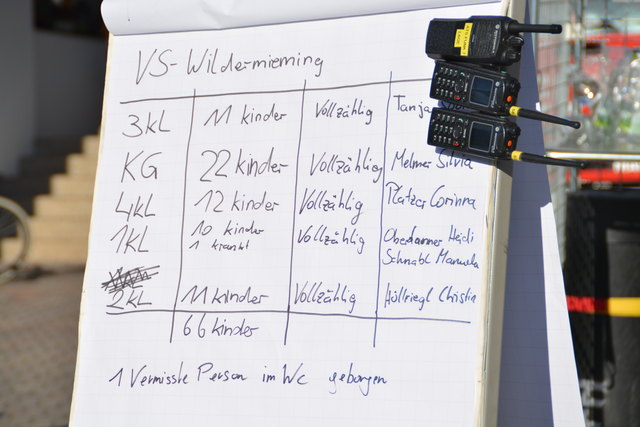 VS-Wildermieming
3KL 11 kinder Vollzählig Tanja
KG 22 kinder Vollzählig Melmer Silvia
4KL 12 kinder Vollzählig Platzer Corinna
1KL 10 kinder Vollzählig Oberdanner Heidi
1 krank Schnabl Manuela
2KL 11 kinder Vollzählig Höllriegl Christin
66 kinder
1 Vermisste Person im WC geborgen